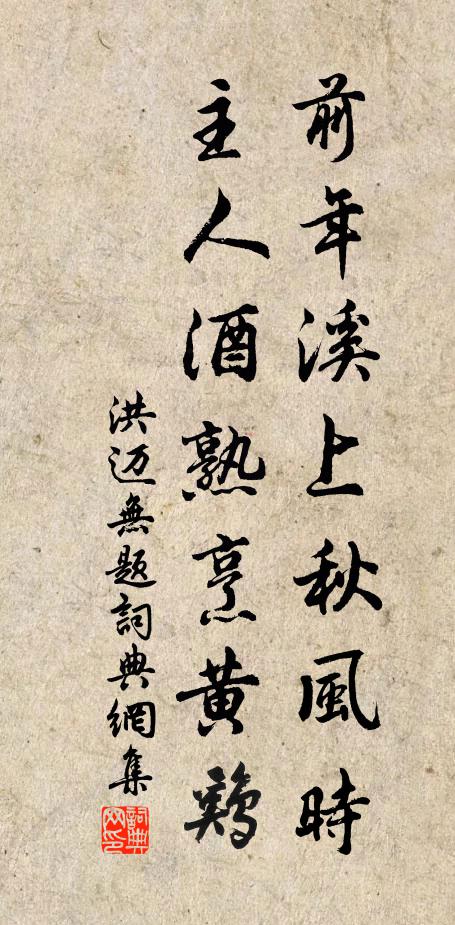 前年溪上秋風時
主人酒熟烹黄鷄
洪迈無题詞典網集
詞典網印